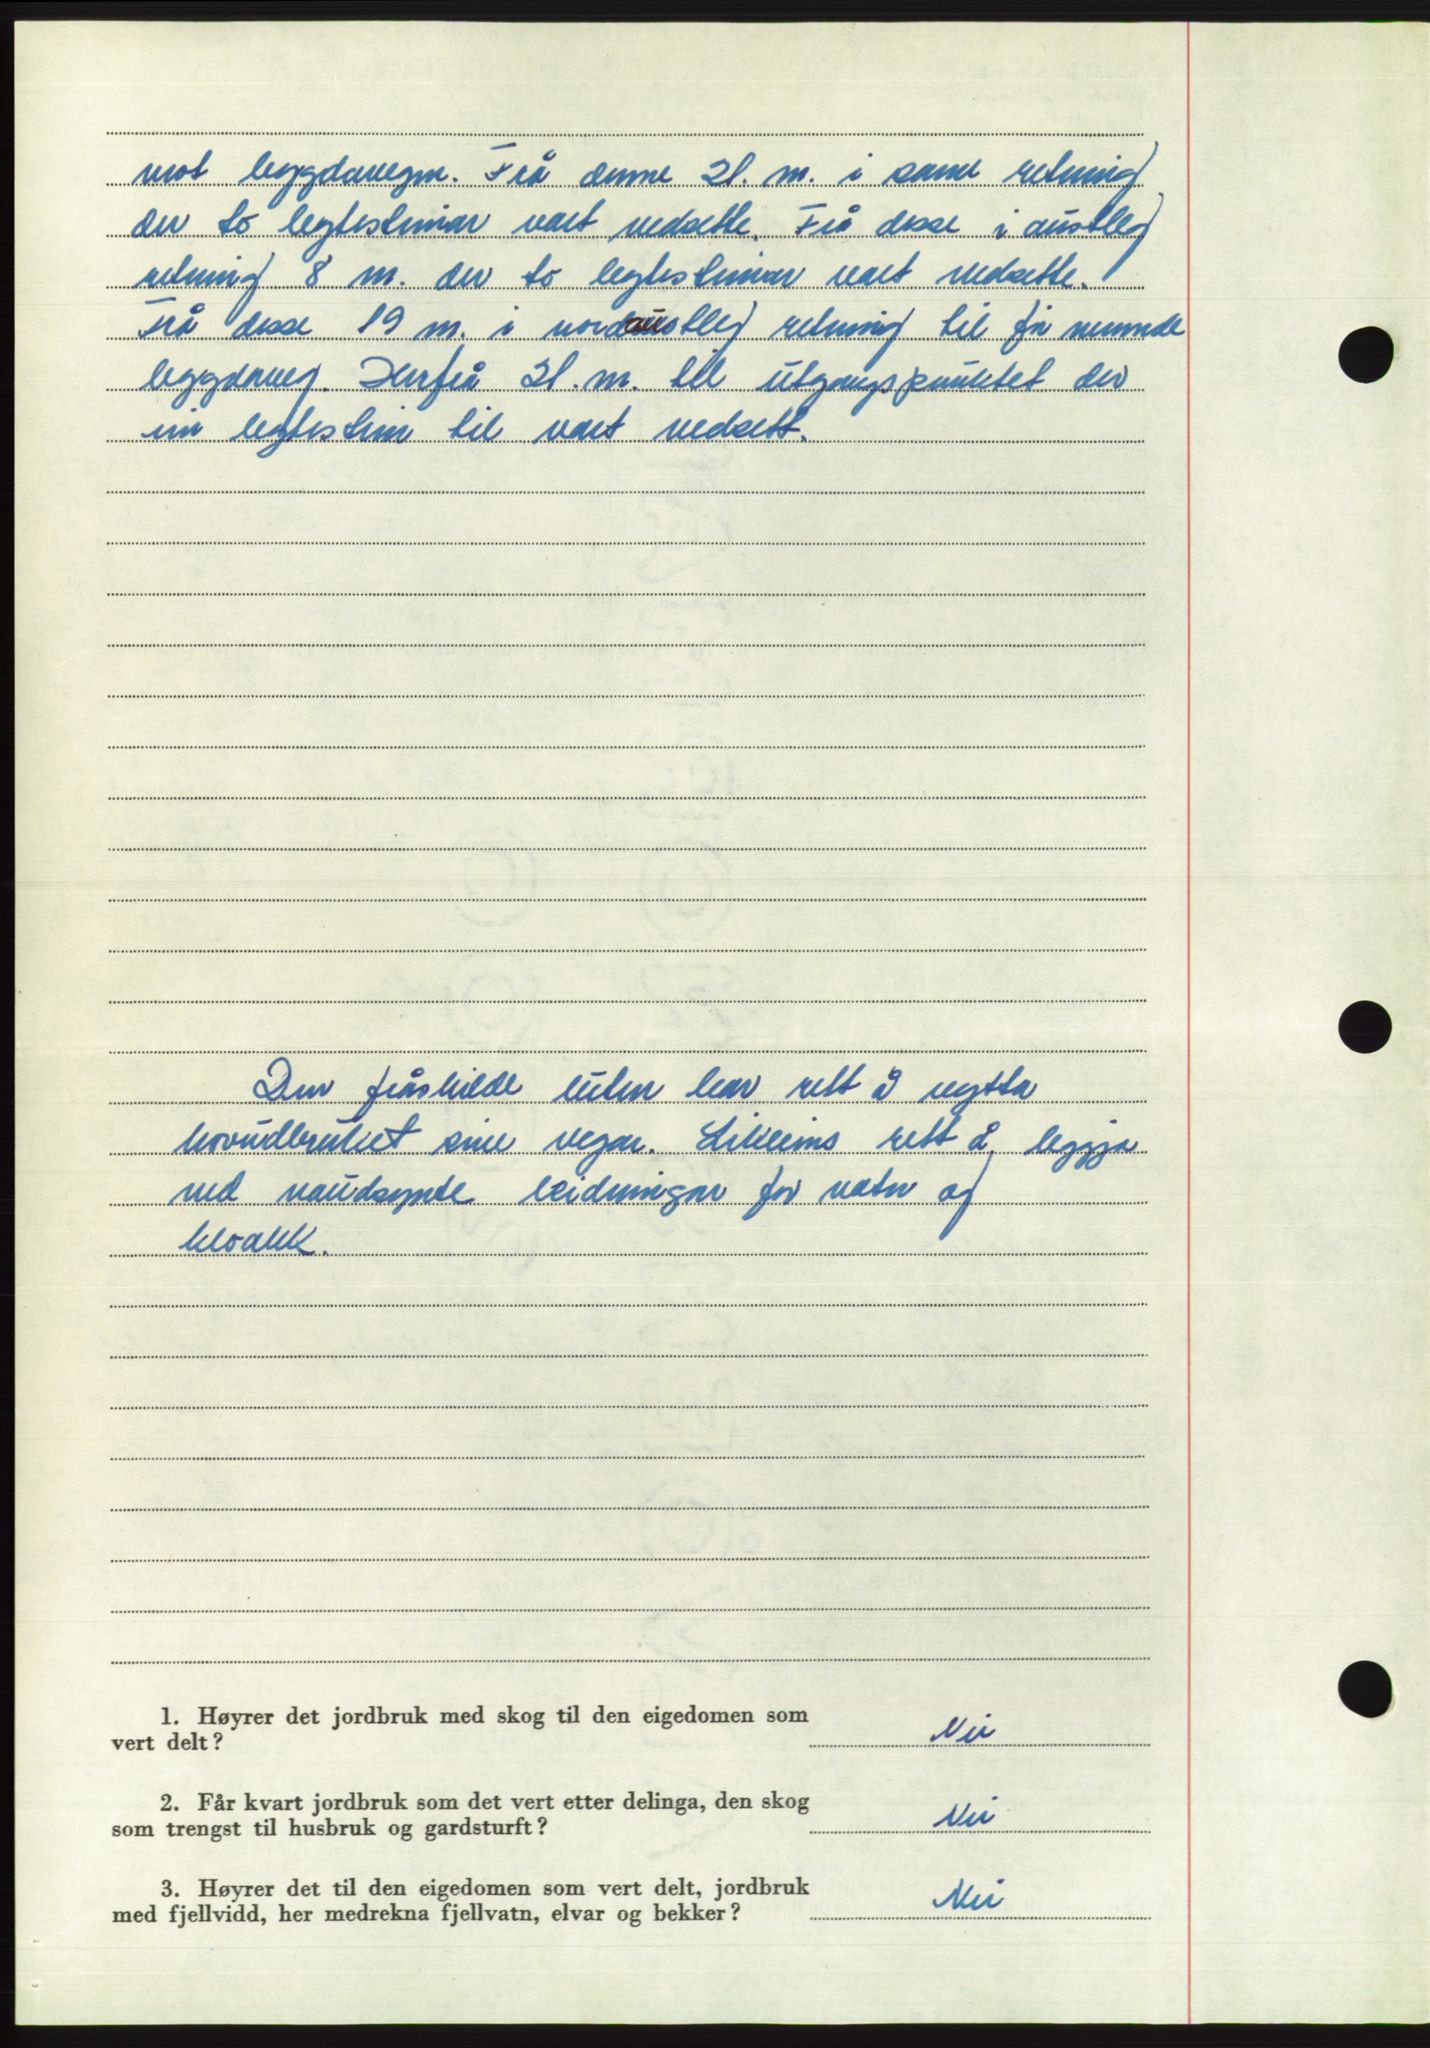 mot bygdavegen. Frå denne 21. m. i same retning
der to bytesteinar vart nedsette. Frå desse i austleg
retning 8 m. der to bytesteinar vart nedsette.
Frå desse 19 m. i nordaustleg retning til før nemnde
bygdaveg. Herfrå 21. m. til utgangspunktet der
ein bytestein til vart nedsett.
Den fråskilde luten har rett å nytta
hovudbruket sine vegar. Likeeins rett å leggja
ned naudsynte leidningar for vatn og
kloakk.
1. Høyrer det jordbruk med skog til den eigedomen som
vert delt? Nei
2. Får kvart jordbruk som det vert etter delinga, den skog
som trengst til husbruk og gardsturft? Nei
3. Høyrer det til den eigedomen som vert delt, jordbruk
med fjellvidd, her medrekna fjellvatn, elvar og bekker? Nei